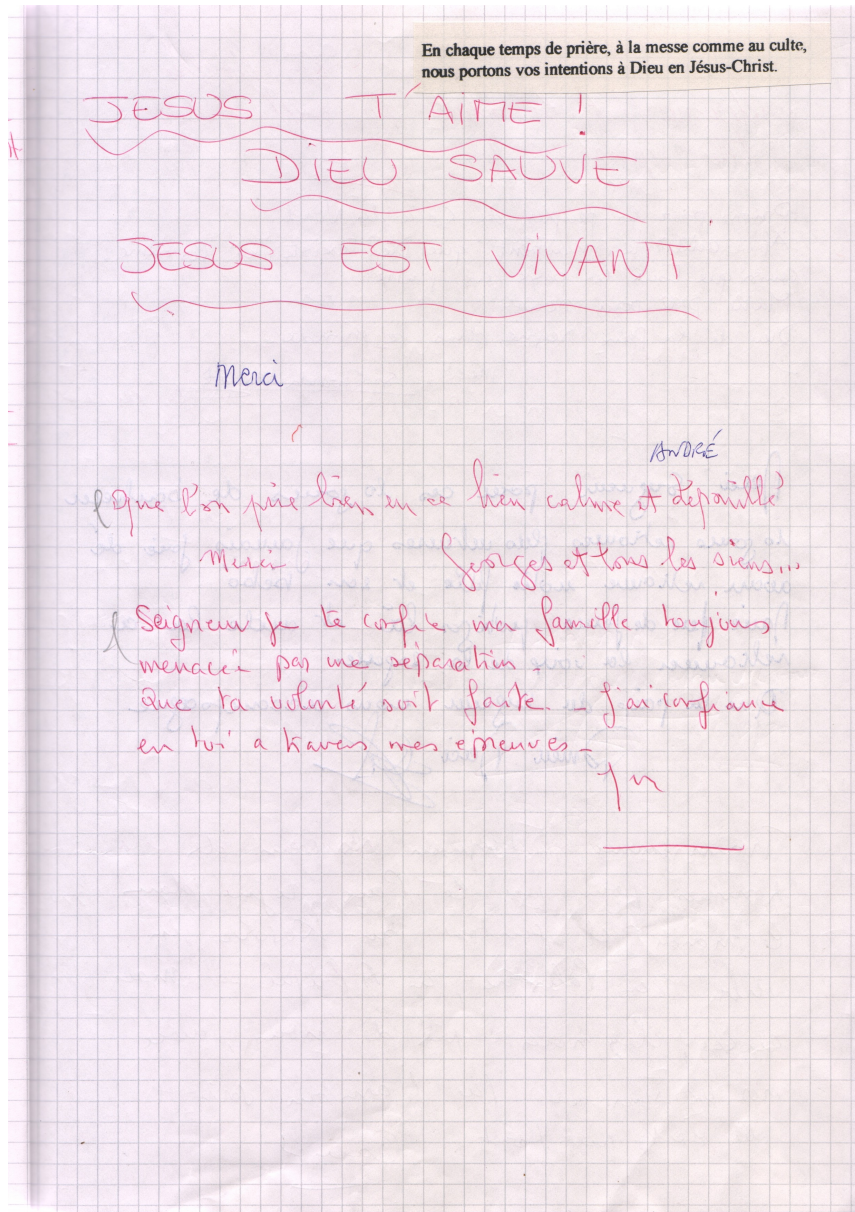 En chaque temps de prière, à la messe comme au culte,
nous portons vos intentions à Dieu en Jésus-Christ.
JESUS T'AIME !
DIEU SAUVE
JESUS EST VIVANT
Merci
ANDRÉ
Que l'on prie bien en ce lieu calme et dépouillé
Merci Georges et tous les siens...
Seigneur je te confie ma famille toujours
menacée par une séparation.
Que ta volonté soit faite. _ J'ai confiance
en toi a travers mes épreuves _